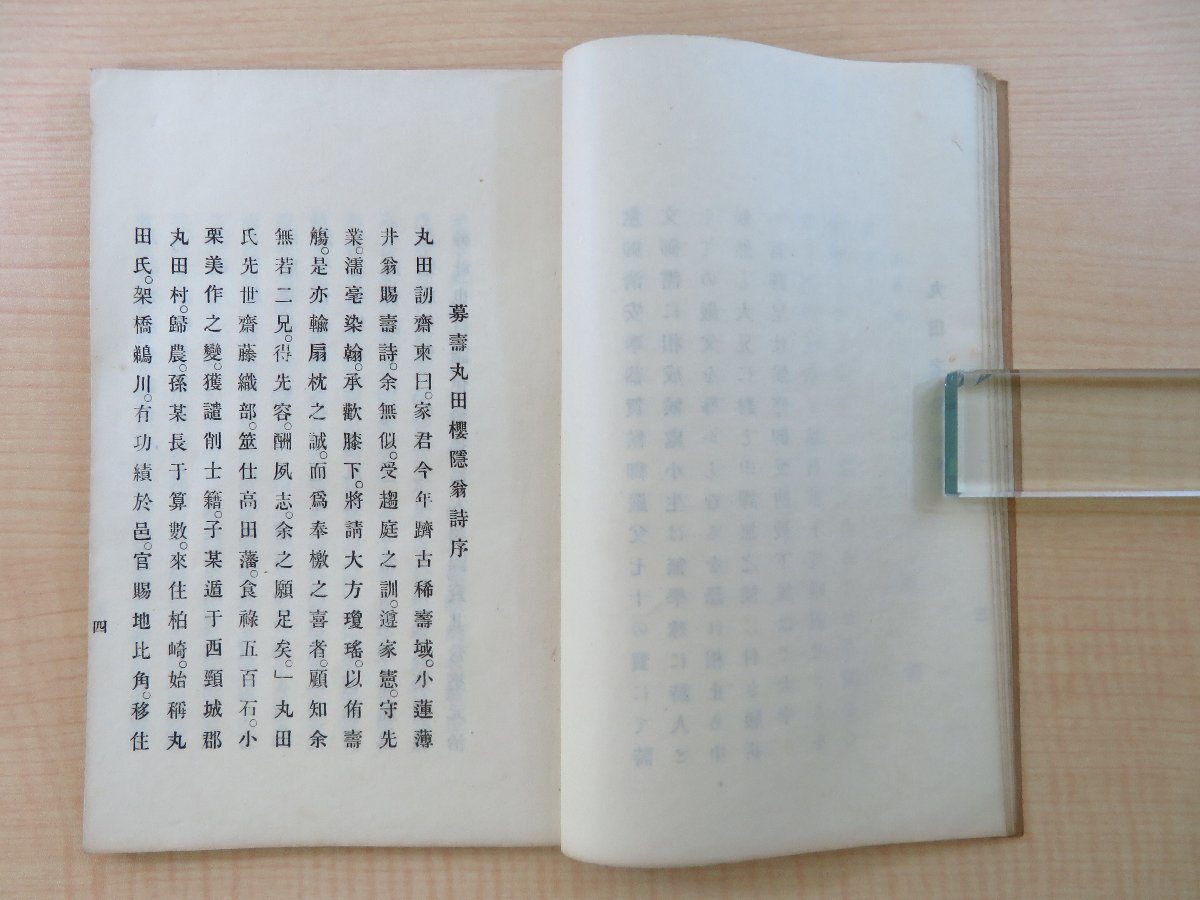 募壽丸田櫻隱翁詩序
丸田訒齋柬曰。家君今年躋古稀壽域。小蓮薄
井翁賜壽詩。余無似。受趨庭之訓。遵家憲。守先
業。濡毫染翰。承歡膝下。將請大方瓊瑤。以侑壽
觴。是亦輸扇枕之誠。而爲奉檄之喜者。顧知余
無若二兄。得先容。酬夙志。余之願足矣。」丸田
氏先世齋藤織部。筮仕高田藩。食祿五百石。小
栗美作之變。獲譴削士籍。子某遁于西頸城郡
丸田村。歸農。孫某長于算數。來住柏崎。始稱丸
田氏。架橋鵜川。有功績於邑。官賜地比角。移住
四